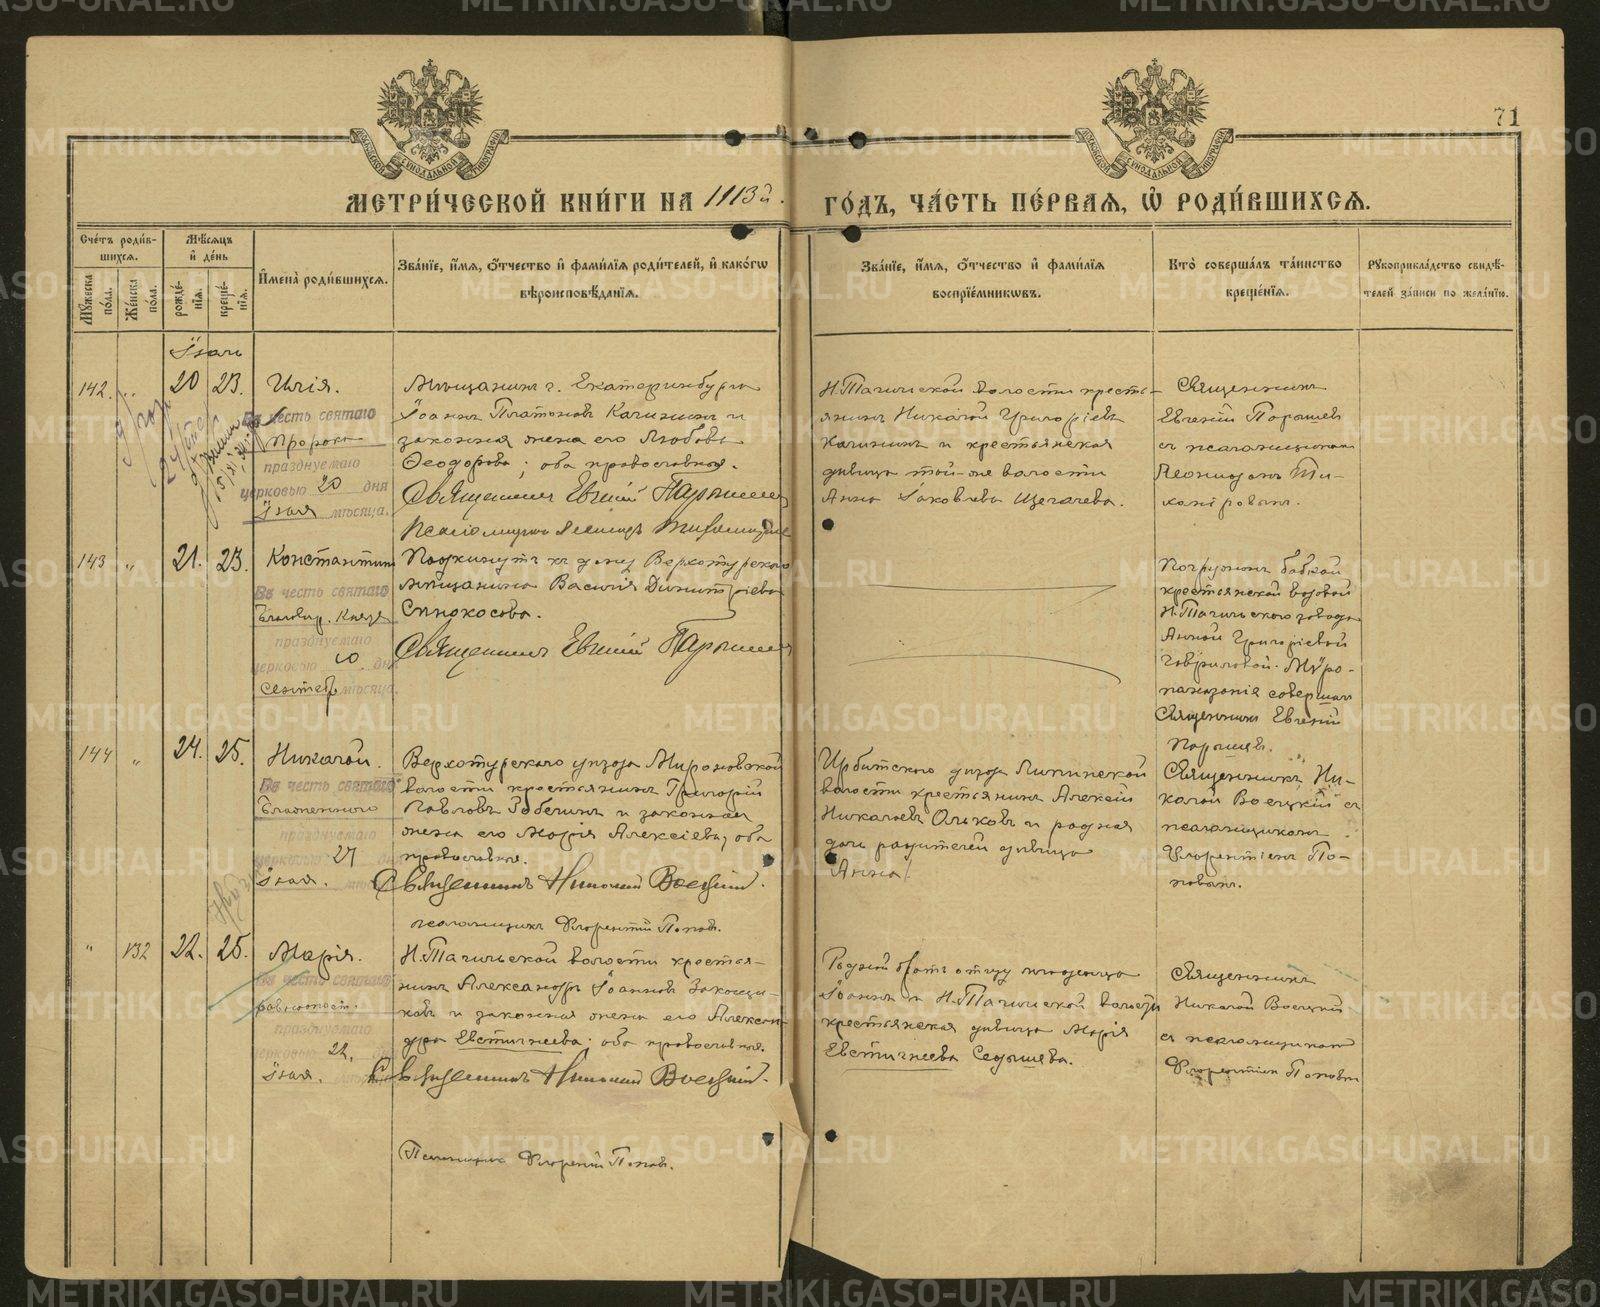 71
МЕТРИ́ЧЕСКОЙ КНИ́ГИ НА 1913й. ГО́ДЪ, ЧА́СТЬ ПЕ́РВАЯ, Ѽ РОДИ́ВШИХСЯ.
Сче́тъ роди́в-
шихся.
Мꙋ́жеска по́ла.
Же́нска по́ла.
Мѣ́сяцъ и҆ де́нь
рожде́-
нїя.
креще́-
нїя.
И҆мена̀ роди́вшихся.
Зва́нїе, и҆́мя, ѻ҆́тчество и҆ фами́лїя роди́телей, и҆ како́гѡ
вѣроисповѣ́данїя.
Зва́нїе, и҆́мя, ѻ҆́тчество и҆ фами́лїя
воспрїе́мникѡвъ.
Кто̀ соверша́лъ та́инство
креще́нїя.
Рꙋкоприкла́дство свидѣ́-
телей за́писи по жела́нїю.
Іюль
142. " 20 23. Илія.
Въ честь святаго
Пророка
празднуемаго
церковью 20 дня
Іюля мѣсяца.
Мѣщанинъ г. Екатеринбурга
Іоаннъ Платоновъ Калининъ и
законная жена его Любовь
Ѳеодорова; оба православные.
Священникъ Евгеній Парышевъ
Псаломщикъ Леонидъ
Н.Тагильской волости кресть-
янинъ Николай Григоріевъ
Калининъ и крестьянская
дѣвица той-же волости
Анна Іаковлева Щегалева.
Священникъ
Евгеній Парышевъ
съ псаломщикомъ
Леонидомъ
143 " 21. 23. Константинъ
Въ честь святаго
Благовѣр. Князя
празднуемаго
церковью дня
Сентяб. мѣсяца.
Подкинутъ къ дому Верхотурскаго
мѣщанина Василія Димитріева
Сѣнокосова.
Священникъ Евгеній Парышевъ
Погружонъ бабкой
крестьянской вдовой
Н.Тагильскаго завода
Анной Григоріевой
Гавриловой. Мѵро-
помазаніе совершалъ
Священникъ Евгеній
Парышевъ.
144 " 24. 25. Николай.
Въ честь святаго
Блаженнаго
празднуемаго
церковью 27 дня
Іюля. мѣсяца
Верхотурскаго уѣзда Мироновской
волости крестьянинъ Григорій
Павловъ и законная
жена его Марія Алексіева, оба
православные.
Священникъ Николай Воецкій.
псаломщикъ Флорентій Поповъ.
Ирбитскаго уѣзда Липинской
волости крестьянинъ Алексій
Николаевъ Ольковъ и родная
дочь родителей дѣвица
Анна
Священникъ Ни-
колай Воецкій съ
псаломщикомъ
Флорентіемъ По-
повымъ.
" 132 22. 25. Марія.
Въ честь святаго
равноапост.
празднуемаго
церковью 22. дня
Іюля.
Н.Тагильской волости кресть-
нинъ Александръ Іоанновъ
и законная жена его Алексан-
дра Евстигнеева; оба православные.
Священникъ Николай Воецкій.
Псаломщикъ Флорентій Поповъ.
Родной братъ отцу младенца
Іоаннъ и Н.Тагильской волости
крестьянская дѣвица Марія
Евстигнеева Седышева.
Священникъ
Николай Воецкій
съ псаломщикомъ
Флорентіем Поповым
METRIKI.GASO-URAL.RU